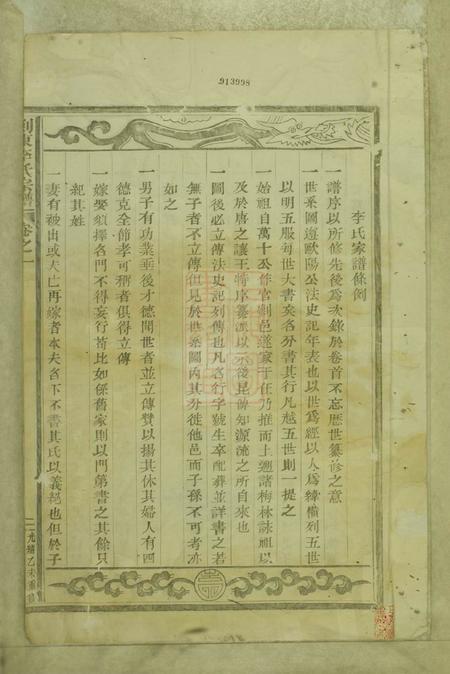 913998
李氏家譜條例
一譜序以所修先後為次錄於卷首不忘歷世纂修之意
一世系圖遵歐陽公法史記年表也以世爲經以人爲緯橫列五世
以明五服每世大書矣名分書其行凡越五世則一提之
一始祖自萬十公作官剡邑遂家于任乃推而上遡諸梅林詠祖以
及於唐之讓王特序臺派以示後昆俾知源流之所自來也
一圖後必立傳法史記列傳也凡名行字號生卒配葬並詳書之若
無子者不立傳但見於世系圖內其分徙他邑而子孫不可考亦
如之
一男子有功業垂後才德聞世者並立傳贊以揚其休其婦人有四
德克全節孝可稱者俱得立傳
一嫁娶須擇名門不得妄行苟比如係舊家則以門第書之其餘只
紀其姓
一妻有被出或夫亡再嫁者本夫名下不書其氏以義絕也但於子
卷之一
光緒乙未重修